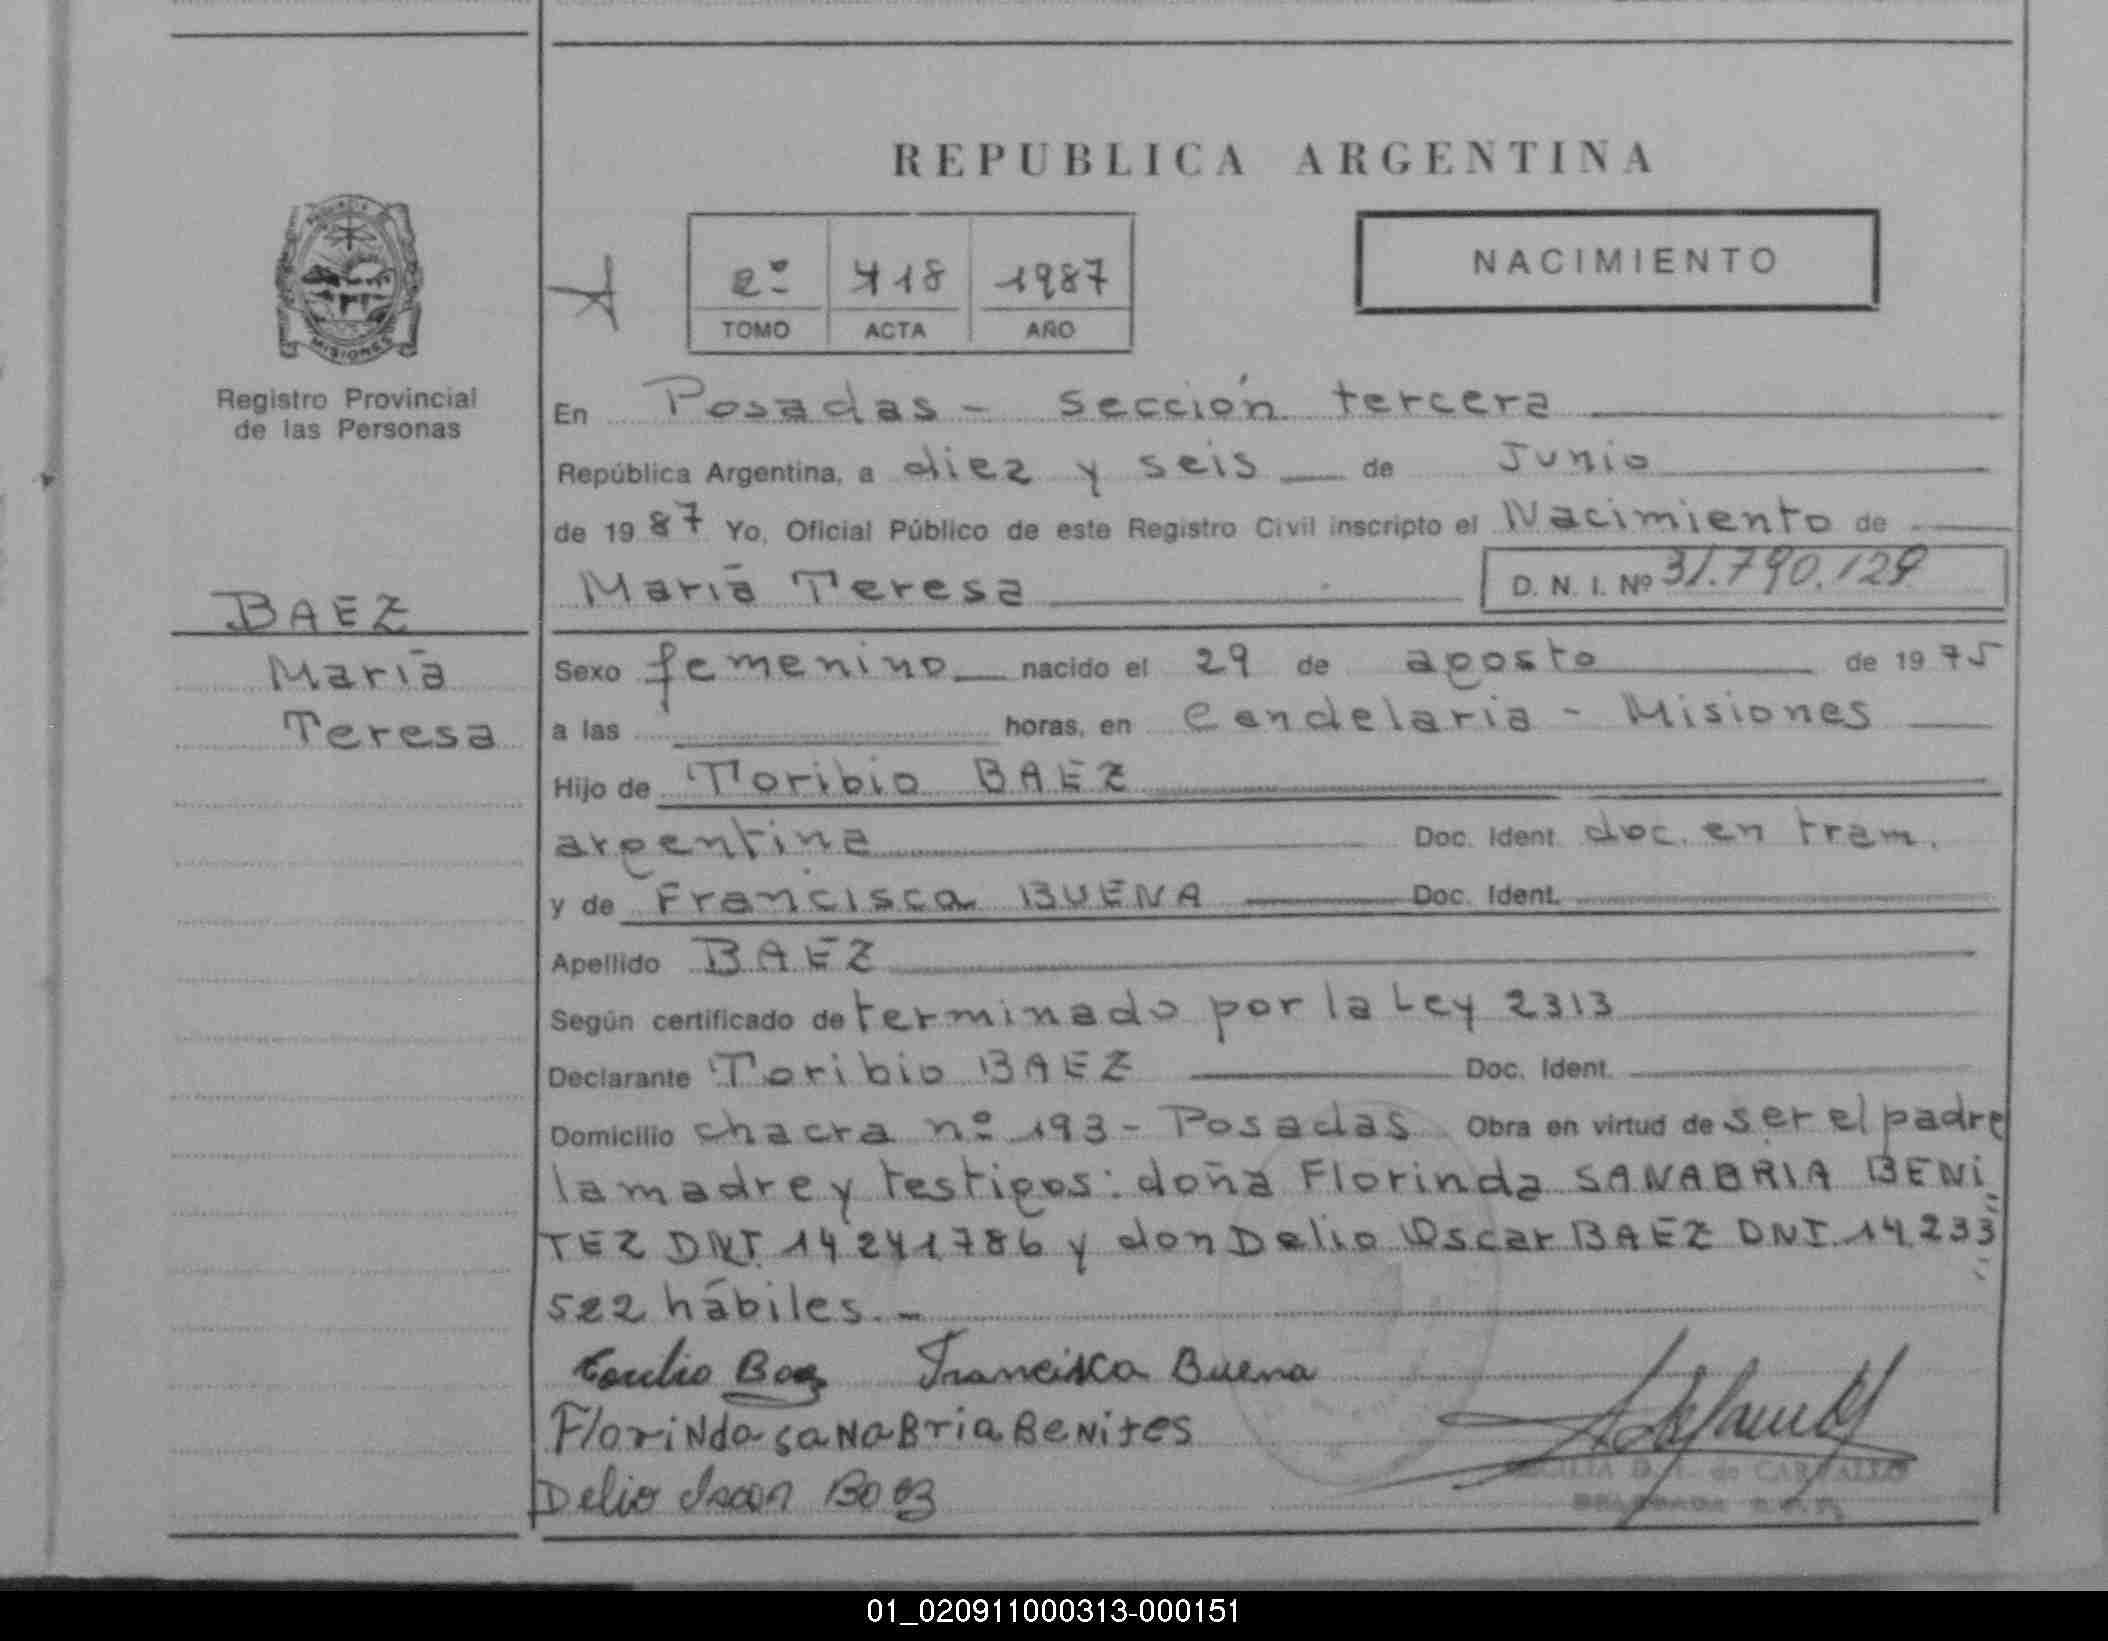 REPUBLICA ARGENTINA
NACIMIENTO
2º 418 1987
TOMO ACTA AÑO
MISIONES
Registro Provincial
de las Personas
BAEZ
María
Teresa
En Posadas - sección tercera
República Argentina, a diez y seis de Junio
de 1987 Yo, Oficial Público de este Registro Civil inscripto el Nacimiento de
María Teresa D. N. I. Nº 31.790.129
Sexo femenino nacido el 29 de agosto de 1975
a las horas, en Candelaria - Misiones
Hijo de Toribio BAEZ
argentina Doc. Ident. doc. en tram.
y de Francisca BUENA Doc. Ident.
Apellido BAEZ
Según certificado determinado por la Ley 2313
Declarante Toribio BAEZ Doc. Ident.
Domicilio chacra nº 193 - Posadas Obra en virtud de ser el padre
la madre y testigos: doña Florinda SANABRIA BENI
TEZ DNI. 14241786 y don Delio Oscar BAEZ DNI. 14.233
522 hábiles. -
Baez Francisca Buena
Florinda Sanabria Benites
Delio Baez
D. de CARVALLO
01_020911000313-000151